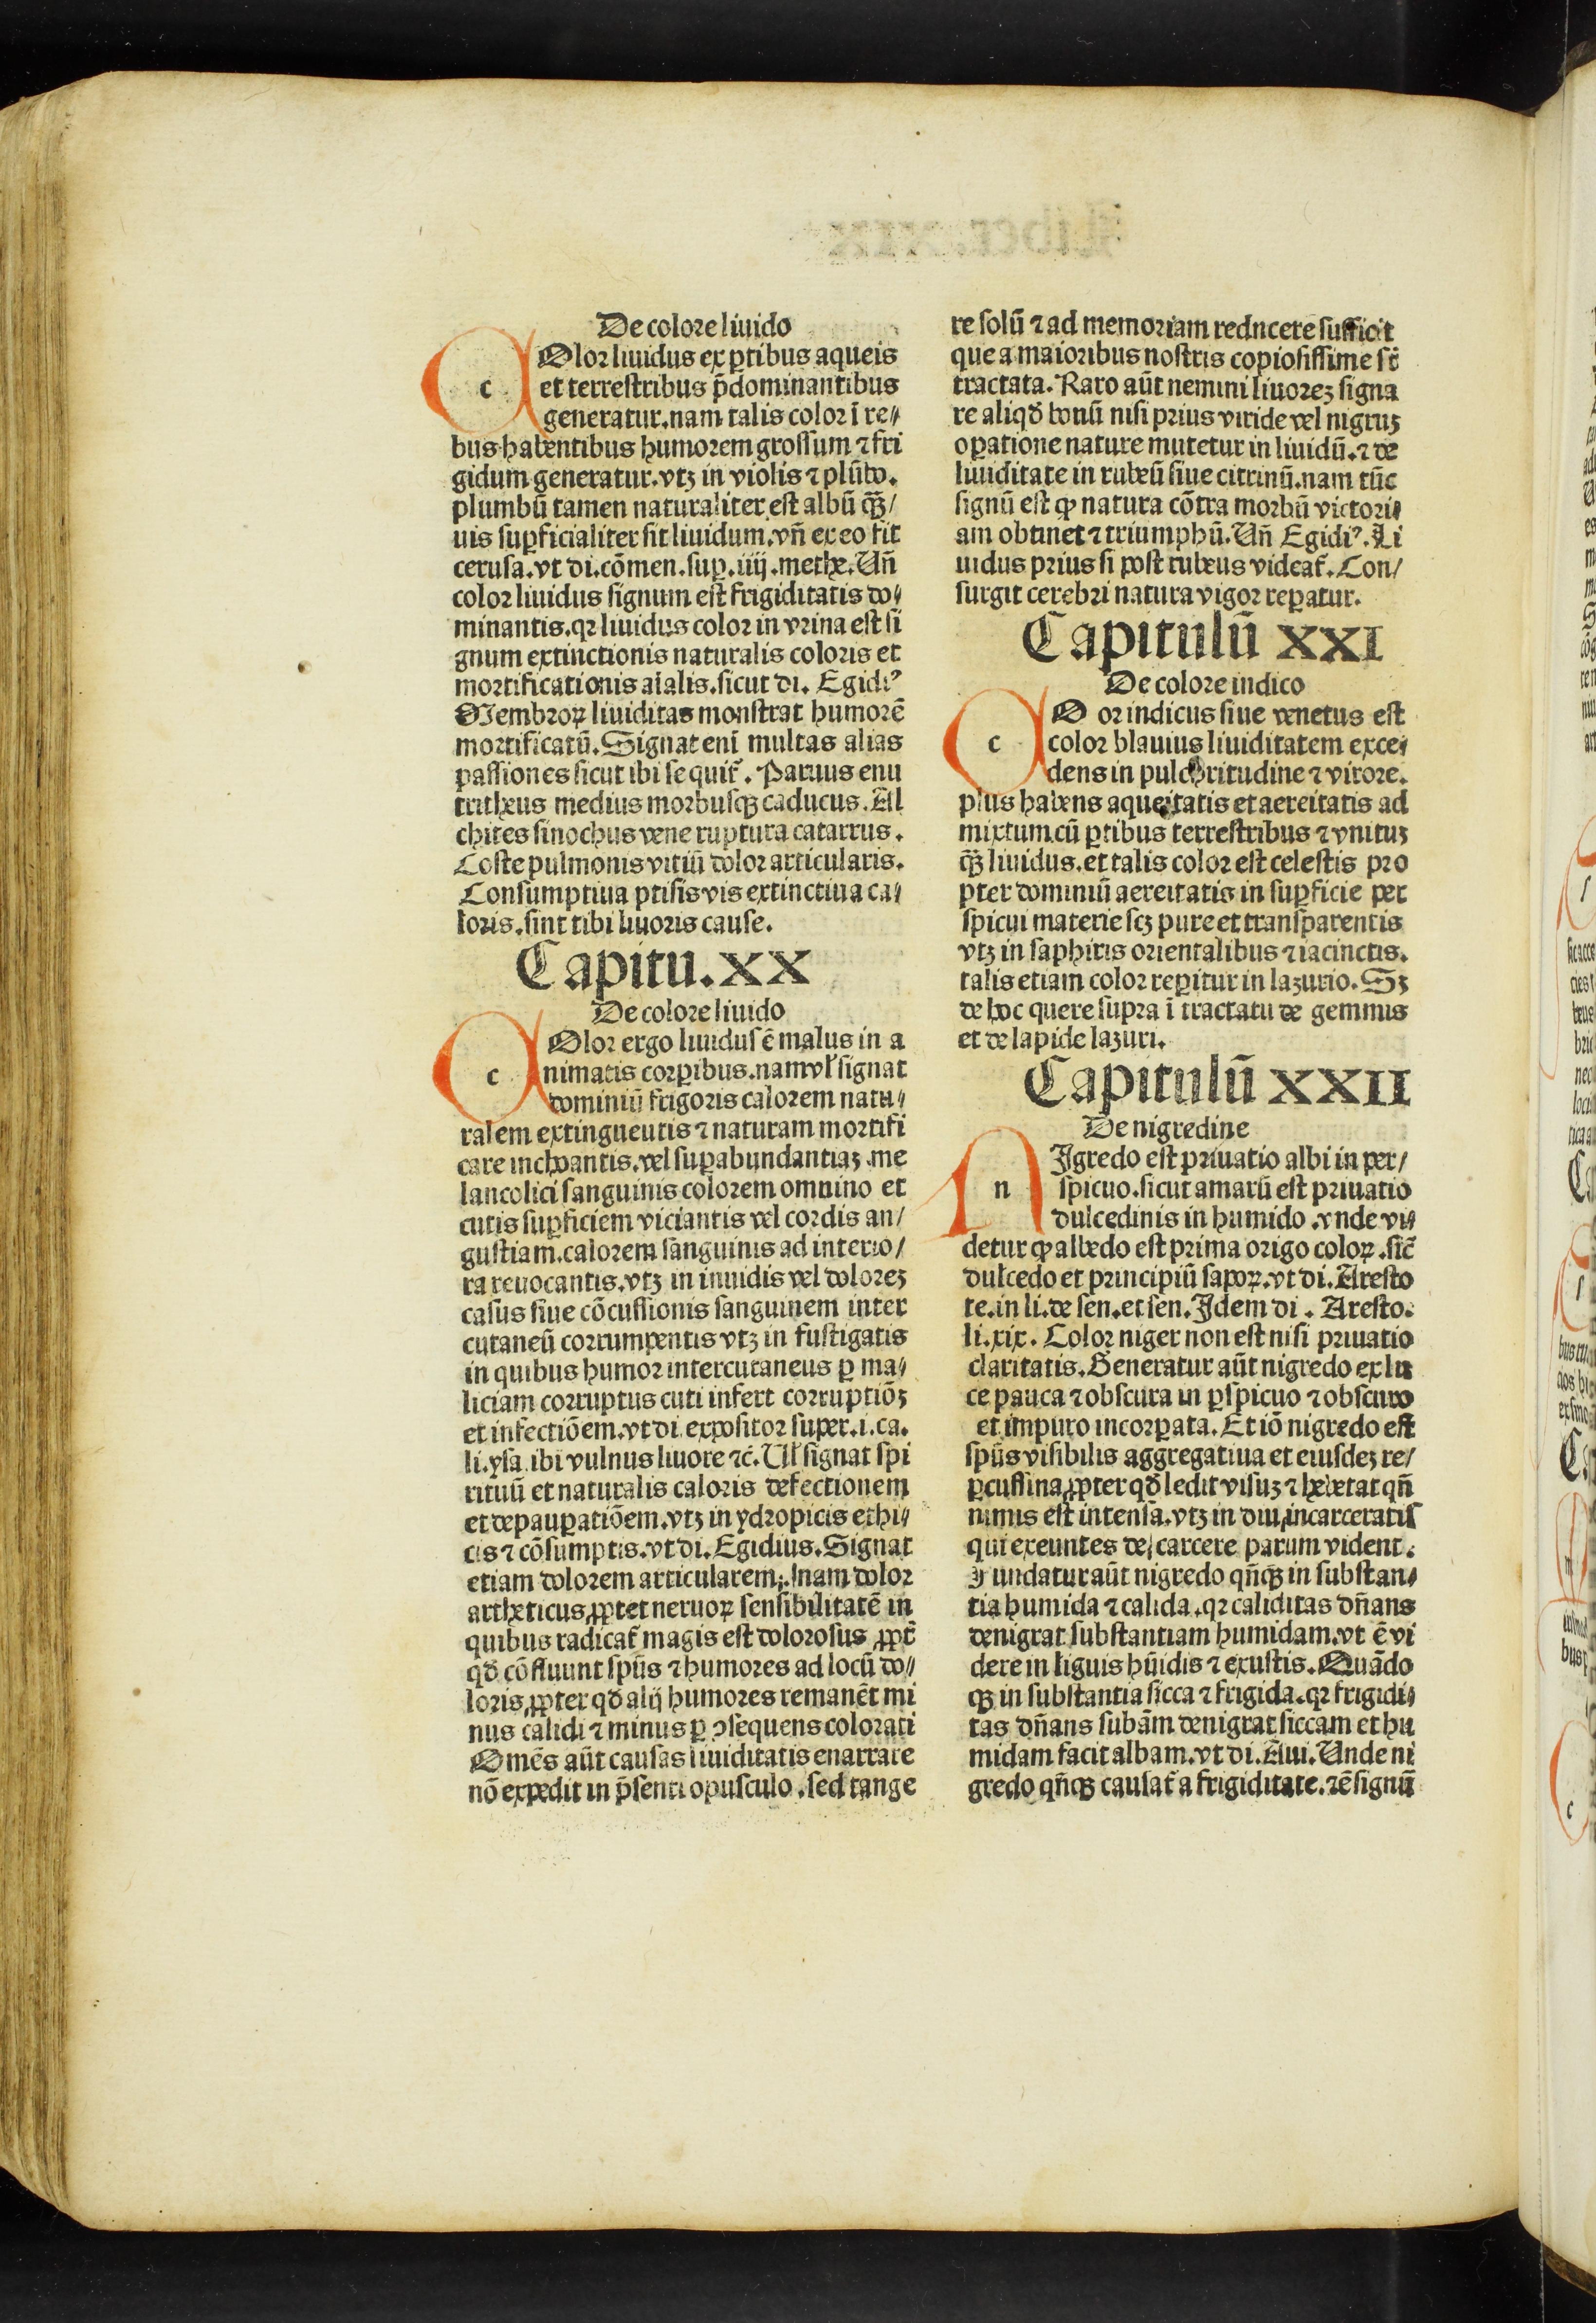 De colore liuido
COlor liuidus ex ꝑtibus aqueis
et terrestribus p̄dominantibus
generatur.nam talis color ī re⸗
bus habentibus humorem grossum ⁊ fri
gidum generatur.vtꝫ in violis ⁊ plūbo.
plumbū tamen naturaliter est albū qꝫ̄/
uis suꝑficialiter sit liuidum.vn̄ ex eo fit
cerusa.vt di.cōmen.suꝑ.iiij.methe.Un̄
color liuidus signum est frigiditatis do⸗
minantis.qꝛ liuidus color in vrina est si
gnum extinctionis naturalis coloris et
mortificationis aialis.sicut di. Egidiꝰ
Membroꝝ liuiditas monstrat humorē
mortificatū.Signat eni multas alias
passiones sicut ibi sequit̄. Paruus enu
tritheus medius morbusqꝫ caducus.Al
chites sinochus vene ruptura catarrus.
Coste pulmonis vitiū dolor articularis.
Consumptiua ptisis vis extinctiua ca⸗
loris.sint tibi liuoris cause.
Capitu.XX
De colore liuido
COlor ergo liuidus ē malus in a
nimatis corꝑibus.nam vl̄ signat
dominiū frigoris calorem natu⸗
ralem extingueutis ⁊ naturam mortifi
care inchoantis.vel suꝑabundantiaꝫ me
lancolici sanguinis colorem omnino et
cutis suꝑficiem viciantis vel cordis an/
gustiam.calorem sanguinis ad interio/
ra reuocantis.vtꝫ in inuidis vel doloreꝫ
casus siue cōcussionis sanguinem inter
cutaneū corrumpentis vtꝫ in fustigatis
in quibus humor intercutaneus ꝑ ma⸗
liciam corruptus cuti infert corruptiōꝫ
et infectiōem.vt di expositor super.i.ca.
li.ysa.ibi vulnus liuore ⁊c̄.Ul̄ signat spi
rituū et naturalis caloris defectionem
et depauꝑatiōem.vtꝫ in ydropicis ethi⸗
cis ⁊ cōsumptis.vt di.Egidius.Signat
etiam dolorem articularem.nam dolor
artheticus ꝓpter neruoꝝ sensibilitatē in
quibus radicat̄ magis est dolorosus ꝓpt̄
qd̄ cōfluunt spūs ⁊ humores ad locū do⸗
loris ꝓpter qd̄ alij humores remanēt mi
nus calidi ⁊ minus ꝑ ↄsequens colorati
Omēs aūt causas liuiditatis enarrare
nō expedit in p̄senti opusculo.sed tange
re solū ⁊ ad memoriam redncere sufficit
que a maioribus nostris copiosissime st̄
tractata.Raro aūt nemini liuoreꝫ signa
re aliqd̄ bonū nisi prius viride vel nigruꝫ
oꝑatione nature mutetur in liuidū.⁊ de
liuiditate in rubeū siue citrinū.nam tūc
signū est ꝙ natura cōtra morbū victori⸗
am obtinet ⁊ triumphū.Un̄ Egidiꝰ.Li
uidus prius si post rubeus videat̄.Con/
surgit cerebri natura vigor reꝑatur.
Capitulū XXI
De colore indico
CO or indicus siue venetus est
color blauius liuiditatem exce⸗
dens in pulchritudine ⁊ virore.
plus habens aqueitatis et aereitatis ad
mixtum cū ꝑtibus terrestribus ⁊ vnituꝫ
qꝫ̄ liuidus.et talis color est celestis pro
pter dominiū aereitatis in suꝑficie per
spicui materie scꝫ pure et transparentis
vtꝫ in saphiris orientalibus ⁊ iacinctis.
talis etiam color reꝑitur in lazurio.Sꝫ
de hoc quere supra ī tractatu de gemmis
et de lapide lazuri.
Capitulū XXII
De nigredine
nIgredo est priuatio albi in per/
spicuo.sicut amarū est priuatio
dulcedinis in humido.vnde vi⸗
detur ꝙ albedo est prima origo coloꝝ.sic̄
dulcedo et principiū sapoꝝ.vt di.Aresto
te.in li.de sen.et sen.Idem di. Aresto.
li.xix. Color niger non est nisi priuatio
claritatis.Generatur aūt nigredo ex lu
ce pauca ⁊ obscura in ꝑspicuo ⁊ obscuro
et impuro incorꝑata.Et iō nigredo est
spūs visibilis aggregatiua et eiusdeꝫ re/
ꝑcussiua ꝓpter qd̄ ledit visuꝫ ⁊ hebetat qn̄
nimis est intensa.vtꝫ in diu incarceratis
qui exeuntes de carcere parum vident.
Fundatur aūt nigredo qn̄qꝫ in substan⸗
tia humida ⁊ calida.qꝛ caliditas dn̄ans
denigrat substantiam humidam.vt ē vi
dere in liguis hūidis ⁊ exustis.Quādo
qꝫ in substantia sicca ⁊ frigida.qꝛ frigidi⸗
tas dn̄ans subām denigrat siccam et hu
midam facit albam.vt di.Aui.Unde ni
gredo qn̄qꝫ causat̄ a frigiditate.⁊ē signū